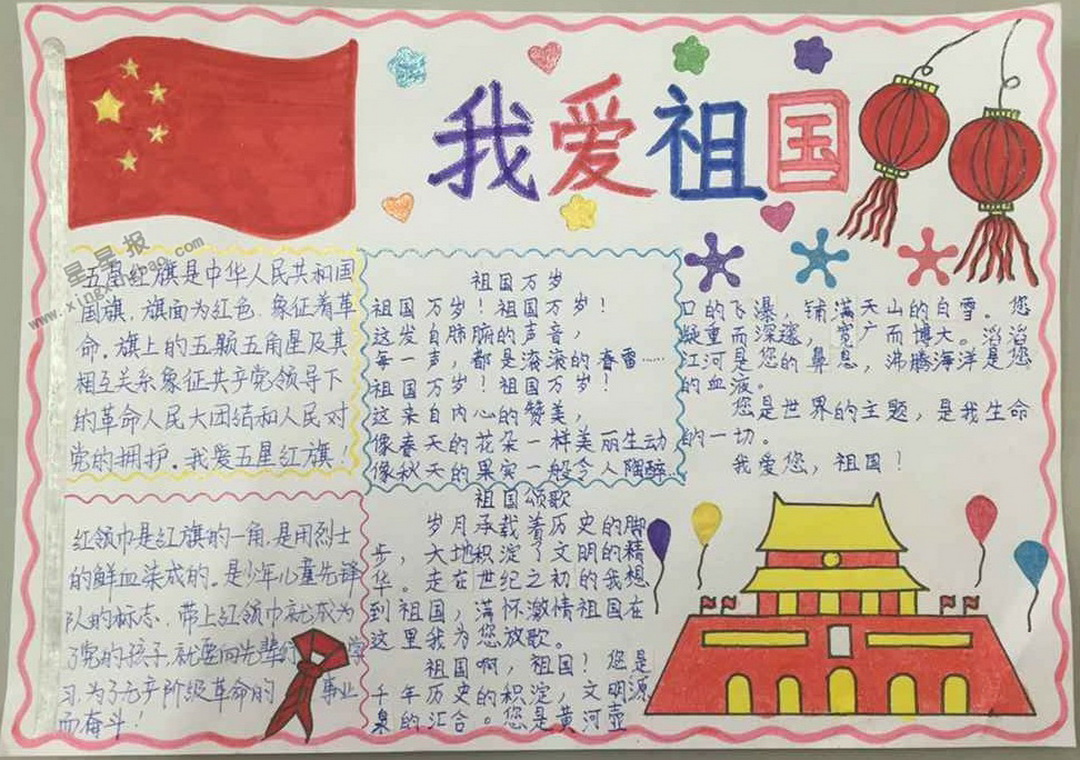 我爱祖国
五星红旗是中华人民共和国
国旗，旗面为红色，象征着革
命。旗上的五颗五角星及其
相互关系象征共产党领导下
的革命人民大团结和人民对
党的拥护。我爱五星红旗！
祖国万岁
祖国万岁！祖国万岁！
这发自肺腑的声音，
每一声，都是滚滚的春雷……
祖国万岁！祖国万岁！
这来自内心的赞美，
像春天的花朵一样美丽生动
像秋天的果实一般令人陶醉
红领巾是红旗的一角，是用烈士
的鲜血染成的。是少年儿童先锋
队的标志，带上红领巾就成为
了党的孩子，就要向先辈们学
习，为了无产阶级革命的事业
而奋斗！
祖国颂歌
岁月承载着历史的脚
步，大地积淀了文明的精
华。走在世纪之初的我想
到祖国，满怀激情祖国在
这里我为您放歌。
祖国啊，祖国！您是
千年历史的积淀，文明源
泉的汇合。您是黄河壶
口的飞瀑，铺满天山的白雪。您
凝重而深邃，宽广而博大。滔滔
江河是您的鼻息，沸腾海洋是您
的血液。
您是世界的主题，是我生命
的一切。
我爱您，祖国！
星星报